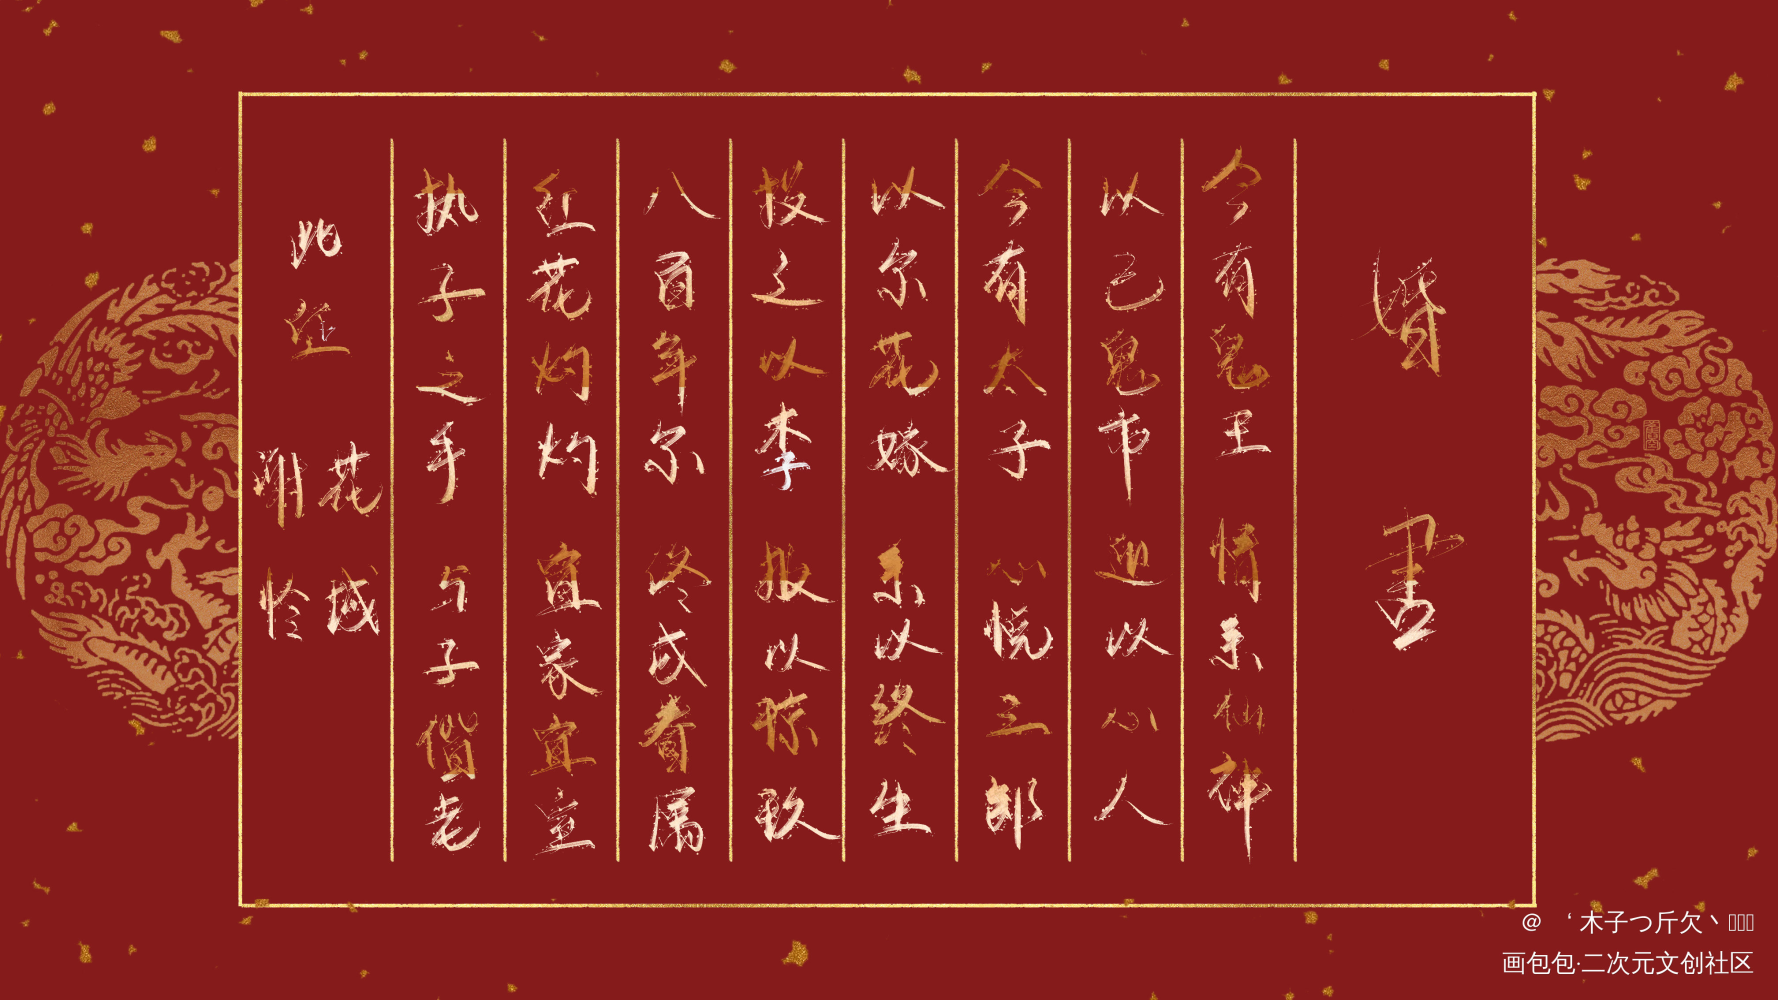 婚书
今有鬼王 情系仙神
以己鬼市 迎以心人
今有太子 心悦三郎
以尔花嫁 系以终生
投之以李 报以琼玖
八百年尔 终成眷属
红花灼灼 宜家宜室
执子之手 与子偕老
此至
花城
谢怜
@ ‘木子つ斤欠丶
画包包·二次元文创社区